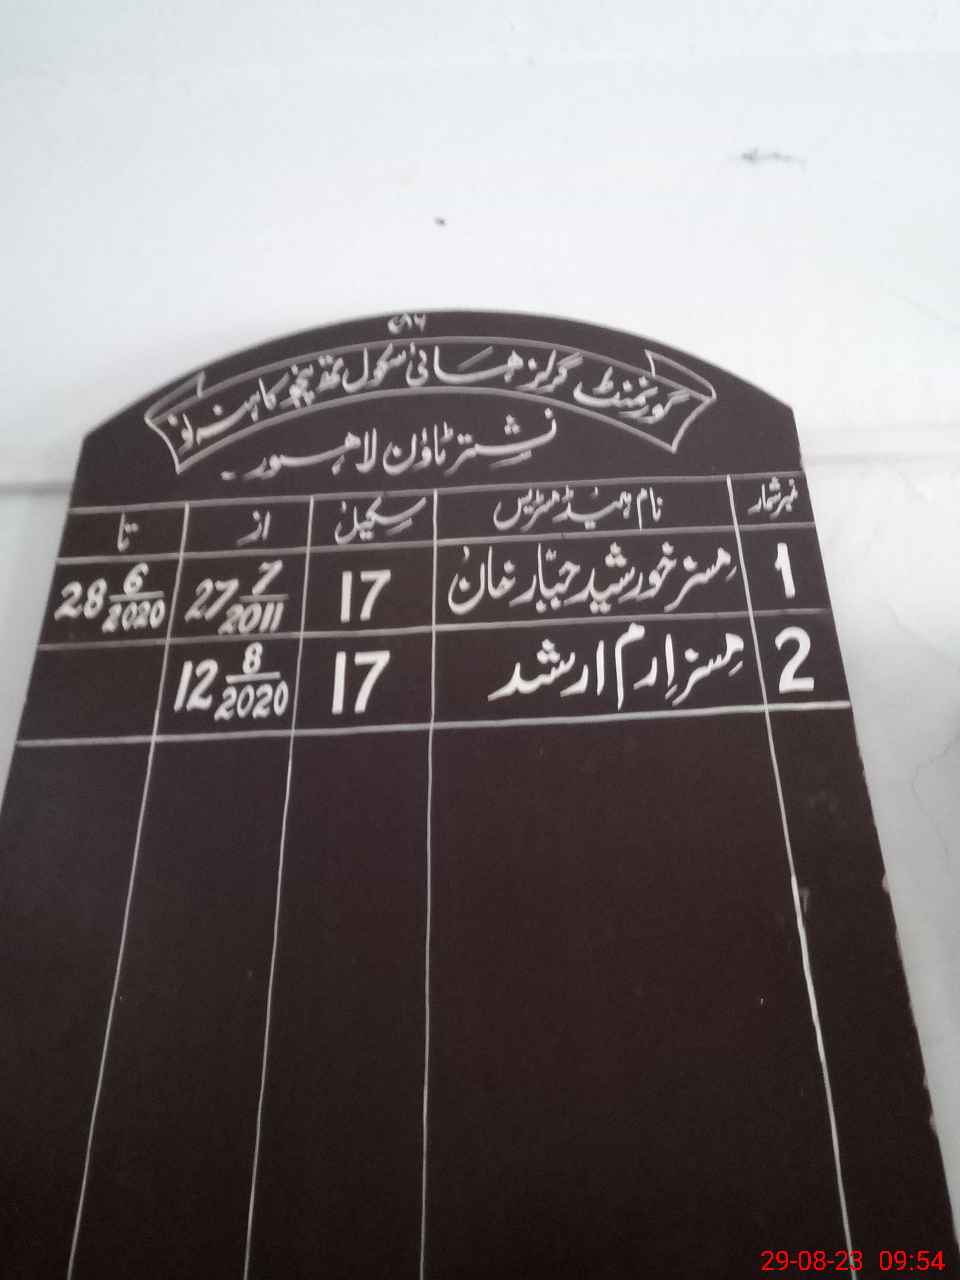 ۷۸۶
گورنمنٹ گرلز ہائی سکول تھہ پنجو کاہنہ نو
نشتر ٹاؤن لاہور۔
نمبر شمار نام ہیڈ مسٹریس سکیل از تا
1 مسز خورشید جبّار خان 17 27 7/2011 28 6/2020
2 مسز اِرم ارشد 17 12 8/2020
29-08-23 09:54